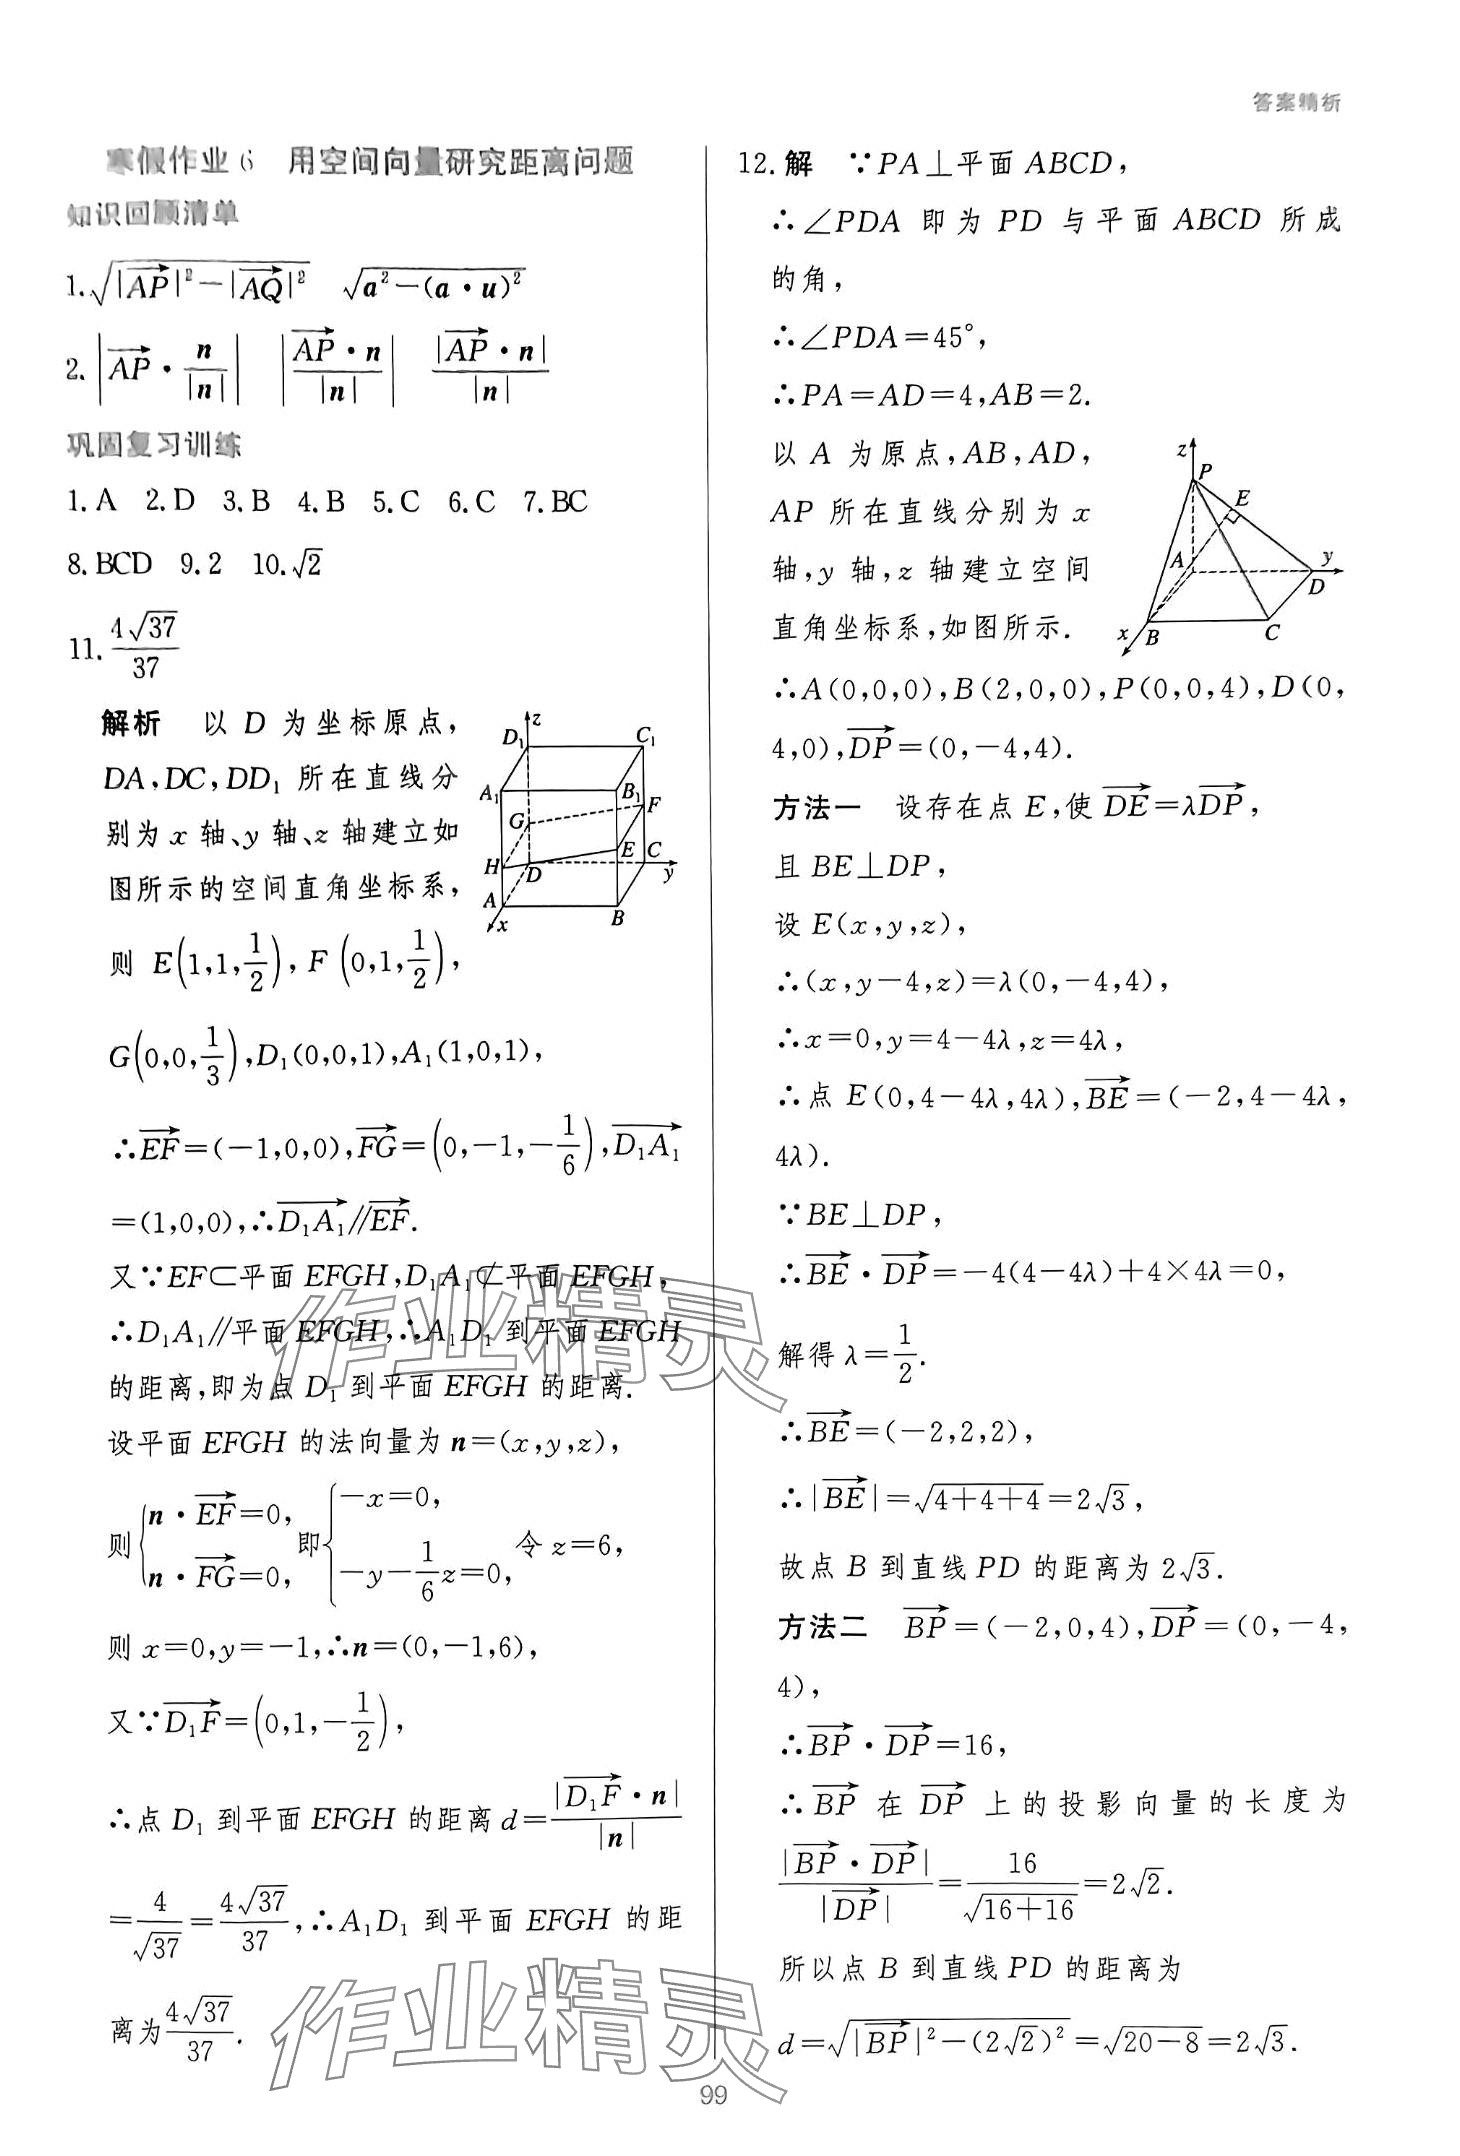 答案精析
寒假作业 6 用空间向量研究距离问题
知识回顾清单
1. √(|AP→|²−|AQ→|²) √(a²−(a·u)²)
2. |AP→·n/|n|| |AP→·n/|n|| |AP→·n|/|n|
巩固复习训练
1.A 2.D 3.B 4.B 5.C 6.C 7.BC
8.BCD 9.2 10.√2
11. 4√37/37
解析 以 D 为坐标原点,
DA,DC,DD₁ 所在直线分
别为 x 轴、y 轴、z 轴建立如
图所示的空间直角坐标系,
则 E(1,1,1/2), F(0,1,1/2),
D₁ z C₁
A₁ B₁
G F
H E C
D y
A B
x
G(0,0,1/3),D₁(0,0,1),A₁(1,0,1),
∴EF→=(−1,0,0),FG→=(0,−1,−1/6),D₁A₁→
=(1,0,0),∴D₁A₁→∥EF→.
又∵EF⊂平面 EFGH,D₁A₁⊄平面 EFGH,
∴D₁A₁∥平面 EFGH,∴A₁D₁ 到平面 EFGH
的距离,即为点 D₁ 到平面 EFGH 的距离.
设平面 EFGH 的法向量为 n=(x,y,z),
则{n·EF→=0, n·FG→=0, 即{−x=0, −y−1/6z=0, 令 z=6,
则 x=0,y=−1,∴n=(0,−1,6),
又∵D₁F→=(0,1,−1/2),
∴点 D₁ 到平面 EFGH 的距离 d=|D₁F→·n|/|n|
=4/√37=4√37/37,∴A₁D₁ 到平面 EFGH 的距
离为4√37/37.
12.解 ∵PA⊥平面 ABCD,
∴∠PDA 即为 PD 与平面 ABCD 所成
的角,
∴∠PDA=45°,
∴PA=AD=4,AB=2.
以 A 为原点,AB,AD,
AP 所在直线分别为 x
轴,y 轴,z 轴建立空间
直角坐标系,如图所示.
z P
E
A y
D
x B C
∴A(0,0,0),B(2,0,0),P(0,0,4),D(0,
4,0),DP→=(0,−4,4).
方法一 设存在点 E,使 DE→=λDP→,
且 BE⊥DP,
设 E(x,y,z),
∴(x,y−4,z)=λ(0,−4,4),
∴x=0,y=4−4λ,z=4λ,
∴点 E(0,4−4λ,4λ),BE→=(−2,4−4λ,
4λ).
∵BE⊥DP,
∴BE→·DP→=−4(4−4λ)+4×4λ=0,
解得 λ=1/2.
∴BE→=(−2,2,2),
∴|BE→|=√(4+4+4)=2√3,
故点 B 到直线 PD 的距离为 2√3.
方法二 BP→=(−2,0,4),DP→=(0,−4,
4),
∴BP→·DP→=16,
∴BP→ 在 DP→ 上的投影向量的长度为
|BP→·DP→|/|DP→|=16/√(16+16)=2√2.
所以点 B 到直线 PD 的距离为
d=√(|BP→|²−(2√2)²)=√(20−8)=2√3.
99
作业精灵
作业精灵